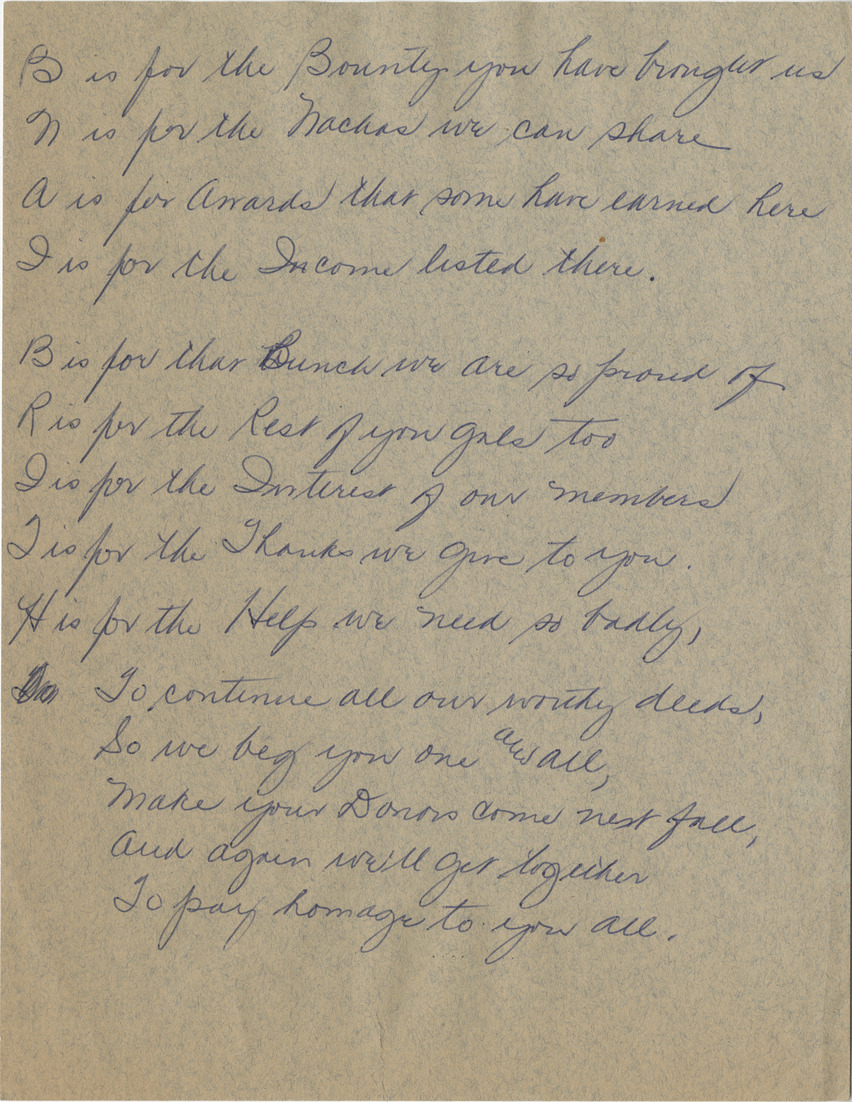 B is for the Bounty you have brought us
N is for the Nachas we can share
A is for Awards that some have earned here
I is for the Income listed there.
B is for that Bunch we are so proud of
R is for the Rest of you gals too
I is for the Interest of our members
T is for the Thanks we give to you.
H is for the Help we need so badly,
To continue all our worthy deeds,
So we beg you one and all,
Make your Donors come next fall,
And again we'll get together
To pay homage to you all.